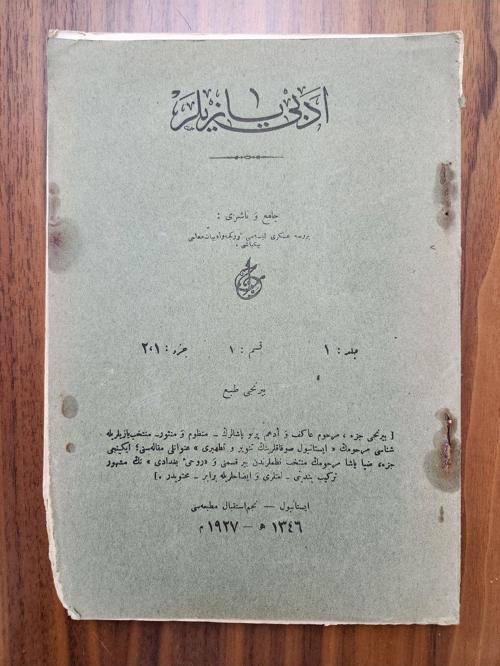 ادبی یازیلر
جامع و ناشری :
بروسه عسکری لیسه‌سی تورکجه و ادبیات معلمی
بیکباشی ؛
جلد : ۱ قسم : ۱ جزء : ۲،۱
برنجی طبع
[ برنجی جزء ، مرحوم عاکف و أدهم پرتو پاشالرك ـ منظوم و منثور ـ منتخب یازیلریله
شناسی مرحومك « ایستانبول سوقاقلرینك تنویر و تطهیری » عنوانلی مقاله‌سنی ؛ ایکینجی
جزء، ضیا پاشا مرحومك منتخب نظملرندن بر قسمنی و «روحیء بغدادی » نك مشهور
ترکیب بندینی ـ لغتلری و ایضاحلریله برابر ـ محتویدر . ]
ایستانبول — نجم استقبال مطبعه‌سی
۱۳۴۶ ه — ۱۹۲۷ م